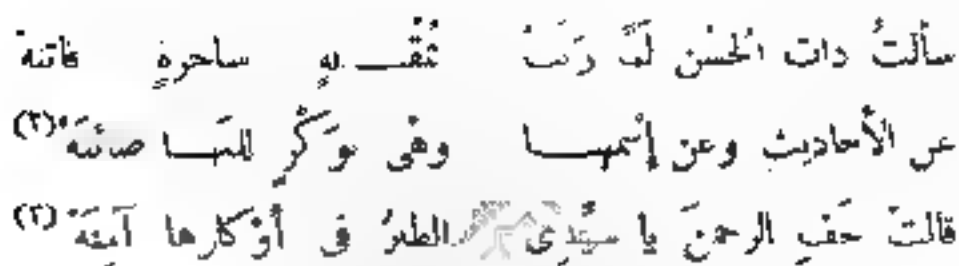 سألتُ ذات الحُسْن لَمَّا رَنَتْ بمُقْــلةٍ ساحرةٍ فاتنة
عن الأحاديث وعن إِسْمهــا وهْى بوَكْرٍ للمَهــا صائنَة (٢)
قالتْ خَفِ الرحمنَ يا سيِّدِى الطيرُ فى أوْكارها آمِنَة (٣)